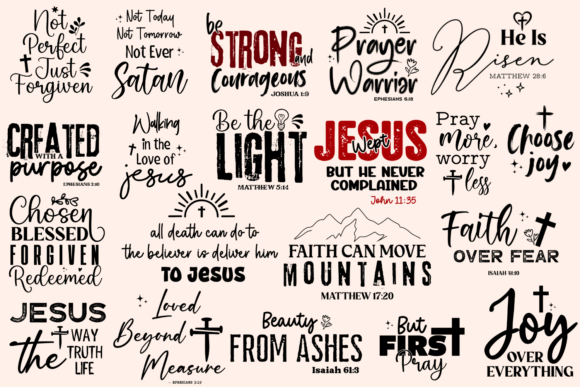 Not
Perfect
Just
Forgiven
Not Today
Not Tomorrow
Not Ever
Satan
be
STRONG
and
Courageous
JOSHUA 1:9
Prayer
Warrior
EPHESIANS 6:18
He Is
Risen
MATTHEW 28:6
CREATED
WITH A
purpose
EPHESIANS 2:10
Walking
in the
Love of
jesus
Be the
LIGHT
MATTHEW 5:14
JESUS
Wept
BUT HE NEVER
COMPLAINED
John 11:35
Pray
more,
worry
less
Choose
joy
Chosen
BLESSED
FORGIVEN
Redeemed
all death can do to
the believer is deliver him
TO JESUS
FAITH CAN MOVE
MOUNTAINS
MATTHEW 17:20
Faith
OVER FEAR
ISAIAH 41:10
JESUS
the
WAY
TRUTH
LIFE
Loved
Beyond
Measure
- EPHESIANS 3:19
Beauty
FROM ASHES
Isaiah 61:3
But
FIRST
Pray
Joy
OVER
EVERYTHING